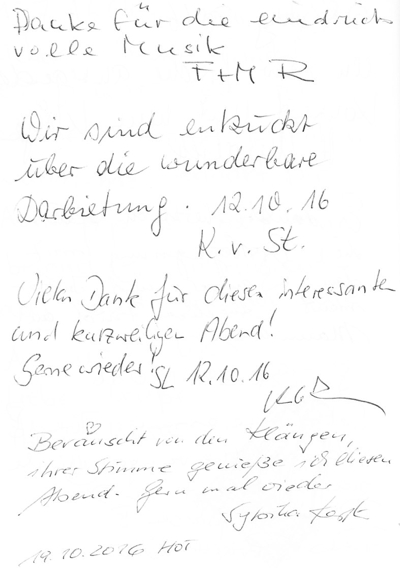 Danke für die eindrucks
volle Musik
F+M R
Wir sind entzückt
über die wunderbare
Darbietung. 12.10.16
K. v. St.
Vielen Dank für diesen interessanten
und kurzweiligen Abend!
Gerne wieder! SL 12.10.16
Berauscht von den Klängen,
ihrer Stimme genieße ich diesen
Abend. Gern mal wieder
19.10.2016 HOT